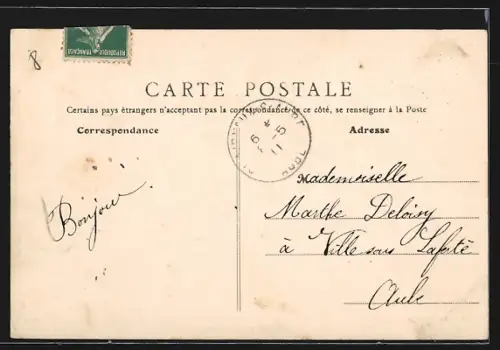 8
REPUBLIQUE FRANÇAISE
CARTE POSTALE
Certains pays étrangers n'acceptant pas la correspondance de ce côté, se renseigner à la Poste
Correspondance
Adresse
6 *
5
11
AUBE
Bonjour
Mademoiselle
Marthe Deloisy
à Ville sous Laferté
Aube